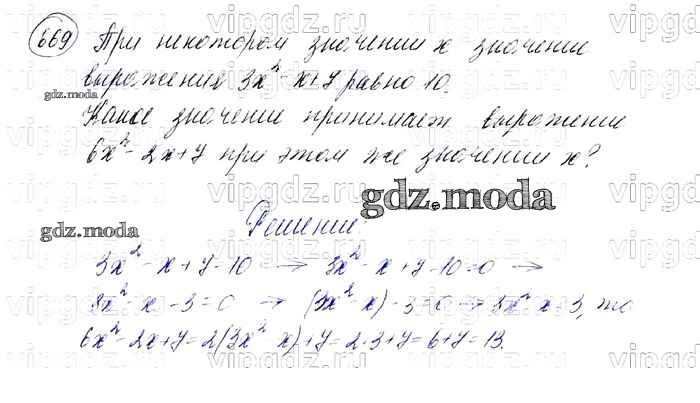 669 При некотором значении x значение
выражения 3x² - x + 7 равно 10.
Какое значение принимает выражение
6x² - 2x + 7 при этом же значении x?
gdz.moda
gdz.moda
gdz.moda
Решение:
3x² - x + 7 = 10 → 3x² - x + 7 - 10 = 0 →
3x² - x - 3 = 0 → (3x² - x) - 3 = 0 → 3x² - x = 3, то
6x² - 2x + 7 = 2(3x² - x) + 7 = 2·3 + 7 = 6 + 7 = 13.
vipgdz.ru